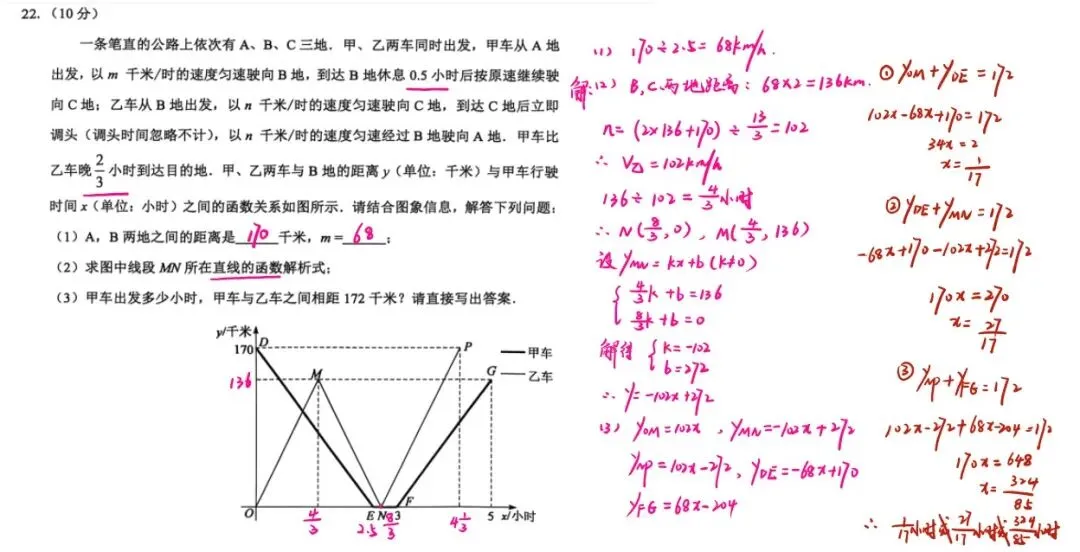 22.（10分）
一条笔直的公路上依次有 A、B、C 三地．甲、乙两车同时出发，甲车从 A 地
出发，以 m 千米/时的速度匀速驶向 B 地，到达 B 地休息 0.5 小时后按原速继续驶
向 C 地；乙车从 B 地出发，以 n 千米/时的速度匀速驶向 C 地，到达 C 地后立即
调头（调头时间忽略不计），以 n 千米/时的速度匀速经过 B 地驶向 A 地．甲车比
乙车晚 2/3 小时到达目的地．甲、乙两车与 B 地的距离 y（单位：千米）与甲车行驶
时间 x（单位：小时）之间的函数关系如图所示．请结合图象信息，解答下列问题：
（1）A，B 两地之间的距离是 170 千米，m = 68 ；
（2）求图中线段 MN 所在直线的函数解析式；
（3）甲车出发多少小时，甲车与乙车之间相距 172 千米？请直接写出答案．
y/千米
170 D P
136 M G
甲车
乙车
O 4/3 E 2.5 N 8/3 3 F 4 1/3 5 x/小时
(1) 170÷2.5=68km/h.
解:(2) B,C两地距离: 68×2=136km.
n=(2×136+170)÷13/3=102
∴ V乙=102km/h
136÷102=4/3小时
∴ N(8/3,0), M(4/3,136)
设 yMN=kx+b(k≠0)
{ 4/3k+b=136
8/3k+b=0
解得 { k=-102
b=272
∴ y=-102x+272
(3) yOM=102x , yMN=-102x+272
yNP=102x-272, yDE=-68x+170
yFG=68x-204
① yOM+yDE=172
102x-68x+170=172
34x=2
x=1/17
② yDE+yMN=172
-68x+170-102x+272=172
170x=270
x=27/17
③ yNP+yFG=172
102x-272+68x-204=172
170x=648
x=324/85
∴ 1/17小时或27/17小时或324/85小时